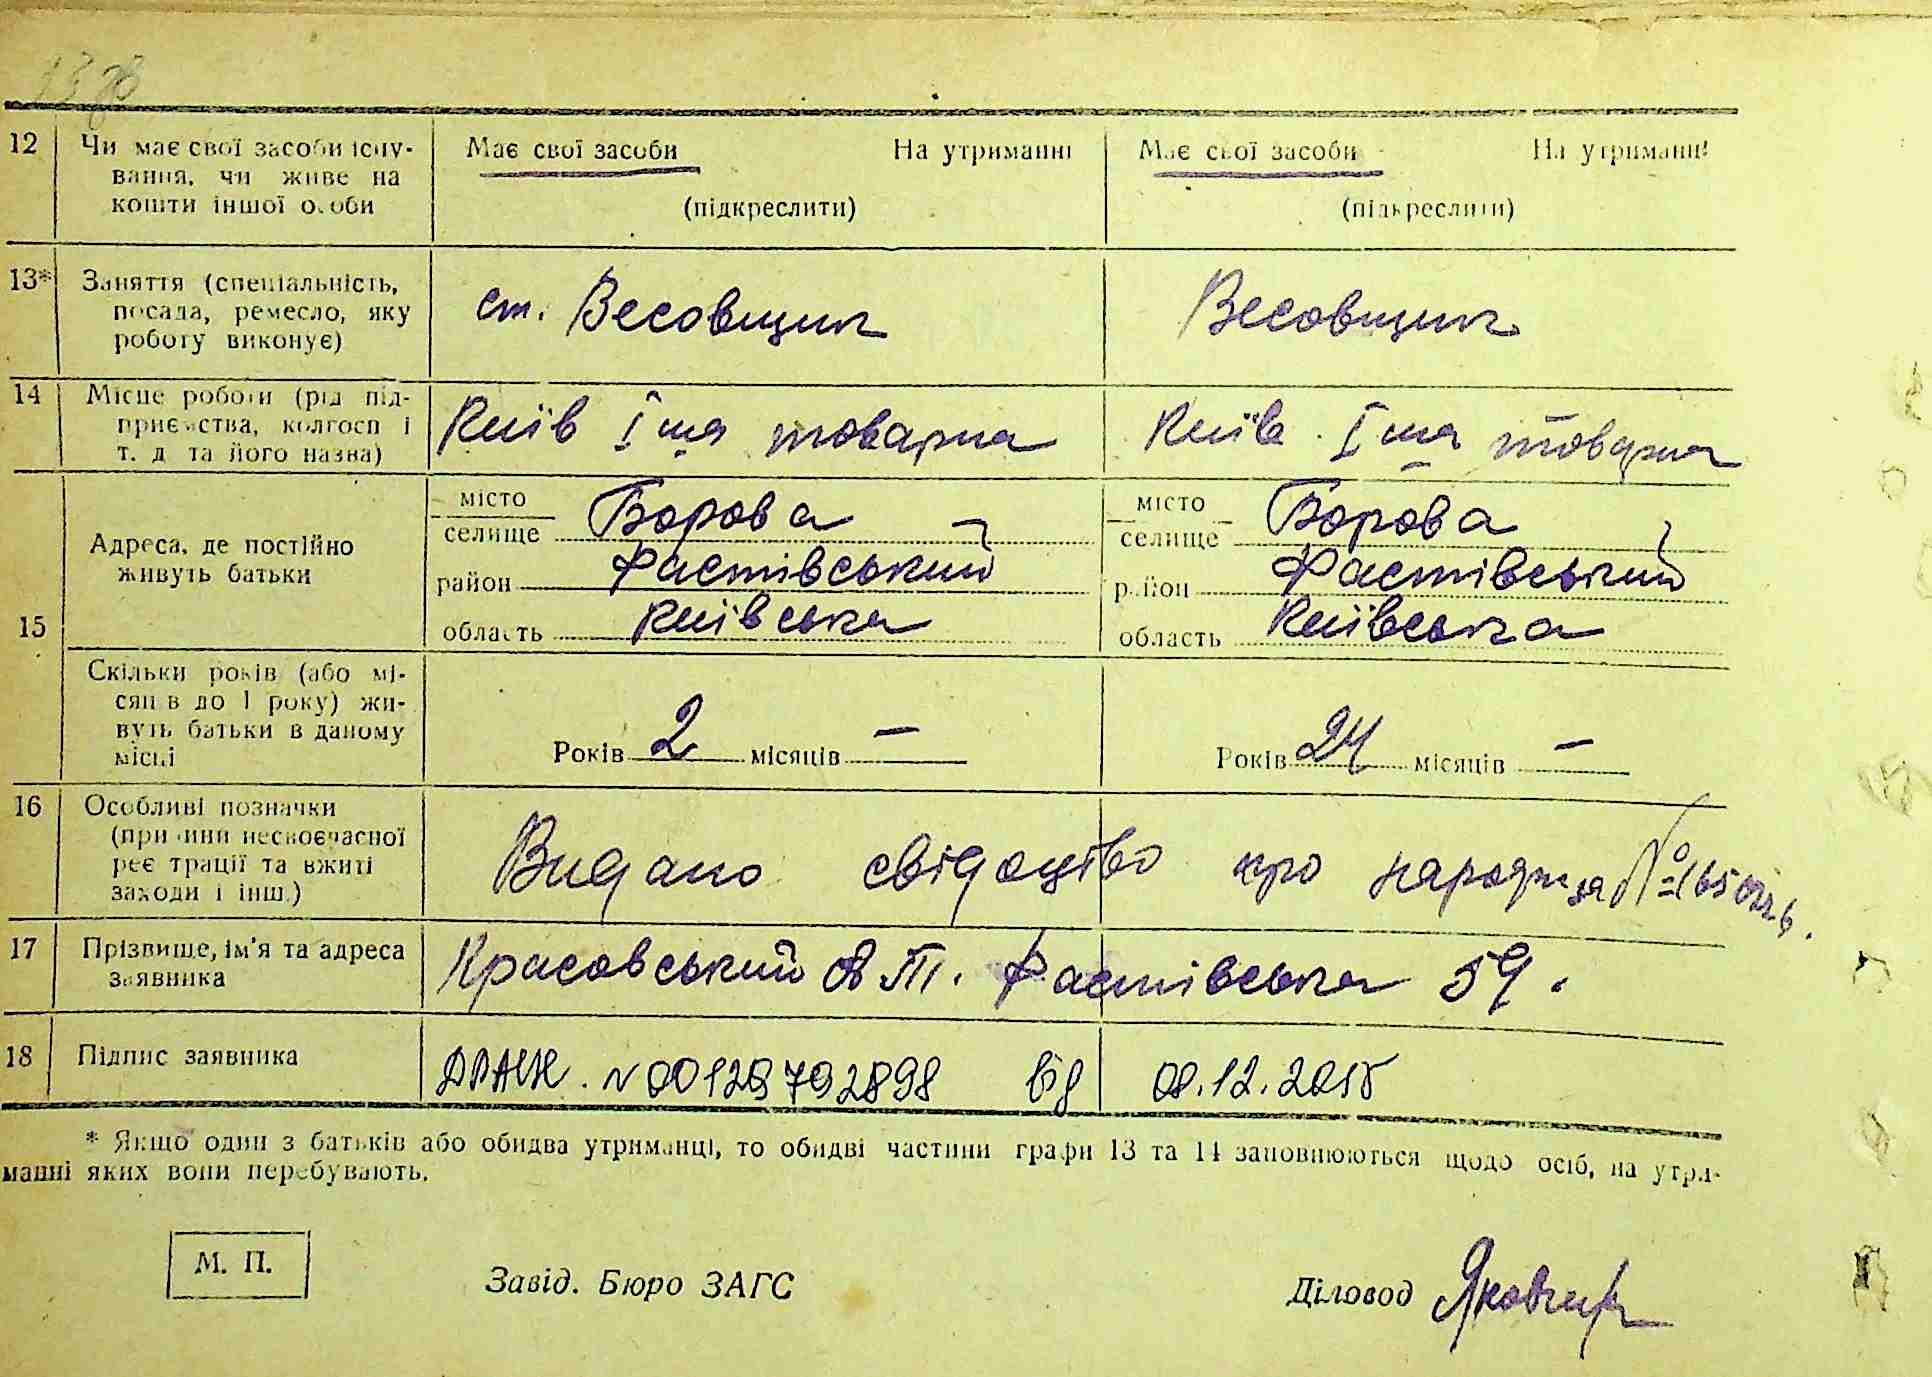 12 Чи має свої засоби існу-
вання, чи живе на
кошти іншої особи
Має свої засоби На утриманні
(підкреслити)
Має свої засоби На утриманні
(підкреслити)
13* Заняття (спеціальність,
посада, ремесло, яку
роботу виконує)
ст. Весовщик
Весовщик
14 Місце роботи (рід під-
приємства, колгосп і
т. д. та його назва)
Київ І ша товарна
Київ І ша товарна
15 Адреса, де постійно
живуть батьки
місто
селище Борова
район Фастівський
область Київська
місто
селище Борова
район Фастівський
область Київська
Скільки років (або мі-
сяців до 1 року) жи-
вуть батьки в даному
місці
Років 2 місяців —
Років 24 місяців —
16 Особливі позначки
(причини несвоєчасної
реєстрації та вжиті
заходи і інш.)
Видано свідоцтво про народж за №
17 Прізвище, ім'я та адреса
заявника
Красовський В Т. Фастівська 59.
18 Підпис заявника
N 00129792898 від 09.12.2015
* Якщо один з батьків або обидва утриманці, то обидві частини графи 13 та 14 заповнюються щодо осіб, на утри-
манні яких вони перебувають.
М. П.
Завід. Бюро ЗАГС
Діловод